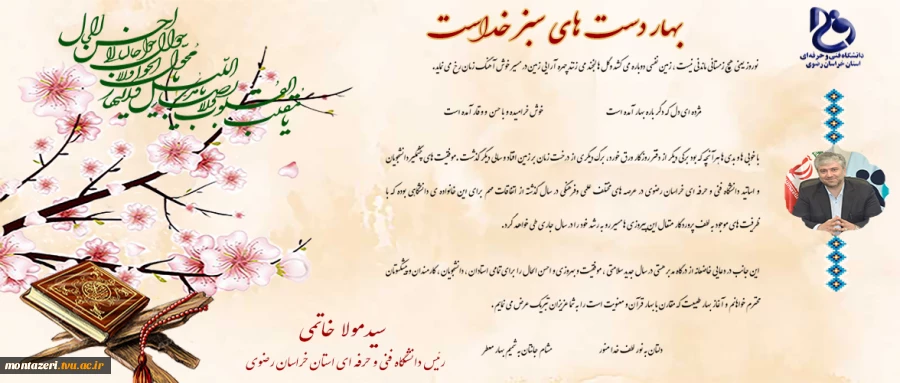 بهار دست های سبز خداست
دانشگاه فنی و حرفه ای
استان خراسان رضوی
نوروز یعنی هیچ زمستانی ماندنی نیست ، زمین نفسی دوباره می کشد و گل ها لبخند می زنند چهره آرایی زمین در مسیر خوش آهنگ زمان رخ می نماید.
مژده ای دل که دگر باره بهار آمده است
خوش خرامیده و با حسن و وقار آمده است
با خوبی ها و بدی ها هر آنچه که بود برگی دیگر از دفتر روزگار ورق خورد، برگ دیگری از درخت زمان بر زمین افتاد و سالی دیگر گذشت. موفقیت های چشمگیر دانشجویان
و اساتید دانشگاه فنی و حرفه ای خراسان رضوی در عرصه های مختلف علمی و فرهنگی در سال گذشته از اتفاقات مهم برای این خانواده ی دانشگاهی بوده که با
ظرفیت های موجود به لطف پروردگار متعال این پیروزی ها مسیر رو به رشد خود را در سال جاری طی خواهد کرد.
این جانب در دعایی خاضعانه از درگاه مدبر هستی در سال جدید سلامتی ، موفقیت و بهروزی و احسن الحال را برای تمامی استادان ، دانشجویان ، کارمندان و پیشکسوتان
محترم خواهانم و آغاز بهار طبیعت که مقارن با بهار قرآن و معنویت است را به شما عزیزان تبریک عرض می نمایم.
دلتان به نور لطف خدا منور
مشام جانتان به شمیم بهار معطر
سید مولا خاتمی
رئیس دانشگاه فنی و حرفه ای استان خراسان رضوی
یا مقلب القلوب و الابصار
یا مدبر اللیل و النهار
یا محول الحول و الاحوال
حول حالنا الی احسن الحال
montazeri.tvu.ac.ir